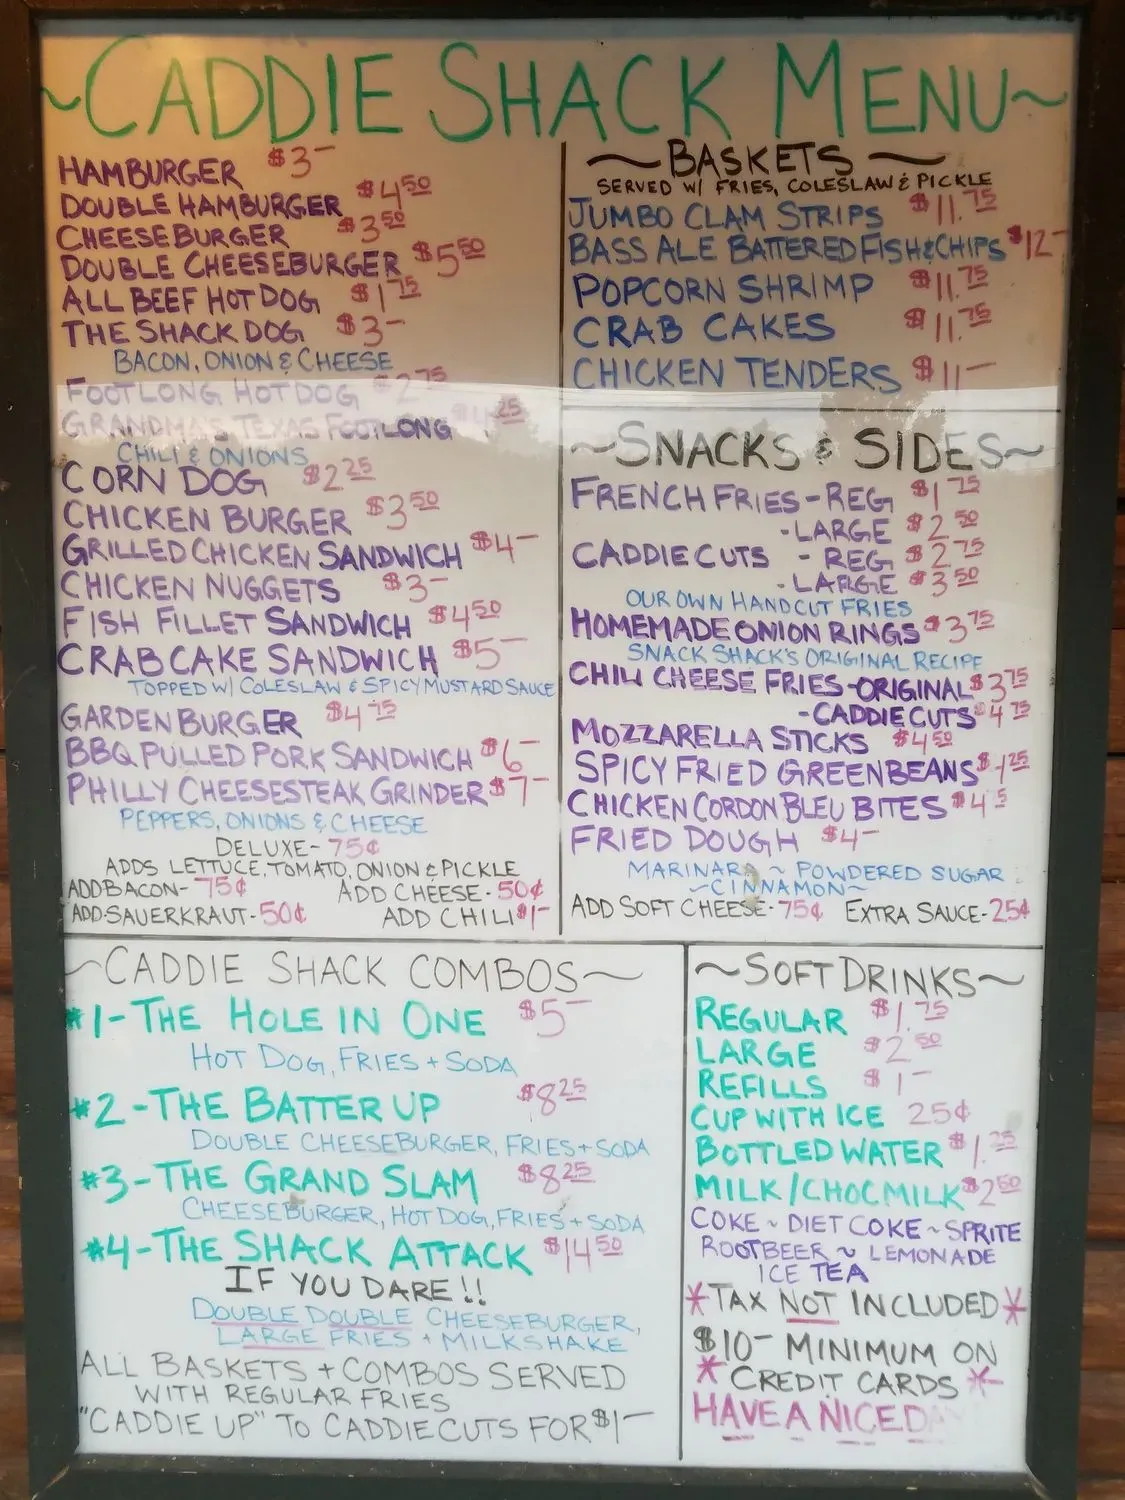 ~CADDIE SHACK MENU~
HAMBURGER $3-
DOUBLE HAMBURGER $4.50
CHEESEBURGER $3.50
DOUBLE CHEESEBURGER $5.50
ALL BEEF HOT DOG $1.75
THE SHACK DOG $3-
BACON, ONION & CHEESE
FOOTLONG HOT DOG $2.75
GRANDMA'S TEXAS FOOTLONG $4.25
CHILI & ONIONS
CORN DOG $2.25
CHICKEN BURGER $3.50
GRILLED CHICKEN SANDWICH $4-
CHICKEN NUGGETS $3-
FISH FILLET SANDWICH $4.50
CRABCAKE SANDWICH $5-
TOPPED W/ COLESLAW & SPICY MUSTARD SAUCE
GARDEN BURGER $4.75
BBQ PULLED PORK SANDWICH $6-
PHILLY CHEESESTEAK GRINDER $7-
PEPPERS, ONIONS & CHEESE
DELUXE- 75¢
ADDS LETTUCE, TOMATO, ONION & PICKLE
ADD BACON- 75¢ ADD CHEESE- 50¢
ADD SAUERKRAUT- 50¢ ADD CHILI $1-
~BASKETS~
SERVED W/ FRIES, COLESLAW & PICKLE
JUMBO CLAM STRIPS $11.75
BASS ALE BATTERED FISH & CHIPS $12-
POPCORN SHRIMP $11.75
CRAB CAKES $11.75
CHICKEN TENDERS $11-
~SNACKS & SIDES~
FRENCH FRIES -REG $1.75
-LARGE $2.50
CADDIE CUTS - REG $2.75
-LARGE $3.50
OUR OWN HANDCUT FRIES
HOMEMADE ONION RINGS $3.75
SNACK SHACK'S ORIGINAL RECIPE
CHILI CHEESE FRIES -ORIGINAL $3.75
-CADDIE CUTS $4.75
MOZZARELLA STICKS $4.50
SPICY FRIED GREENBEANS $4.25
CHICKEN CORDON BLEU BITES
FRIED DOUGH $4-
MARINARA ~ POWDERED SUGAR
~CINNAMON~
ADD SOFT CHEESE- 75¢ EXTRA SAUCE- 25¢
~CADDIE SHACK COMBOS~
#1-THE HOLE IN ONE $5-
HOT DOG, FRIES + SODA
#2-THE BATTER UP $8.25
DOUBLE CHEESEBURGER, FRIES + SODA
#3-THE GRAND SLAM $8.25
CHEESEBURGER, HOT DOG, FRIES + SODA
#4-THE SHACK ATTACK $14.50
IF YOU DARE!!
DOUBLE DOUBLE CHEESEBURGER,
LARGE FRIES + MILKSHAKE
ALL BASKETS + COMBOS SERVED
WITH REGULAR FRIES
"CADDIE UP" TO CADDIECUTS FOR $1-
~SOFT DRINKS~
REGULAR $1.75
LARGE $2.50
REFILLS $1-
CUP WITH ICE 25¢
BOTTLED WATER $1.25
MILK/CHOCMILK $2.50
COKE ~ DIET COKE ~ SPRITE
ROOTBEER ~ LEMONADE
ICE TEA
*TAX NOT INCLUDED*
$10- MINIMUM ON
*CREDIT CARDS*
HAVE A NICE DA